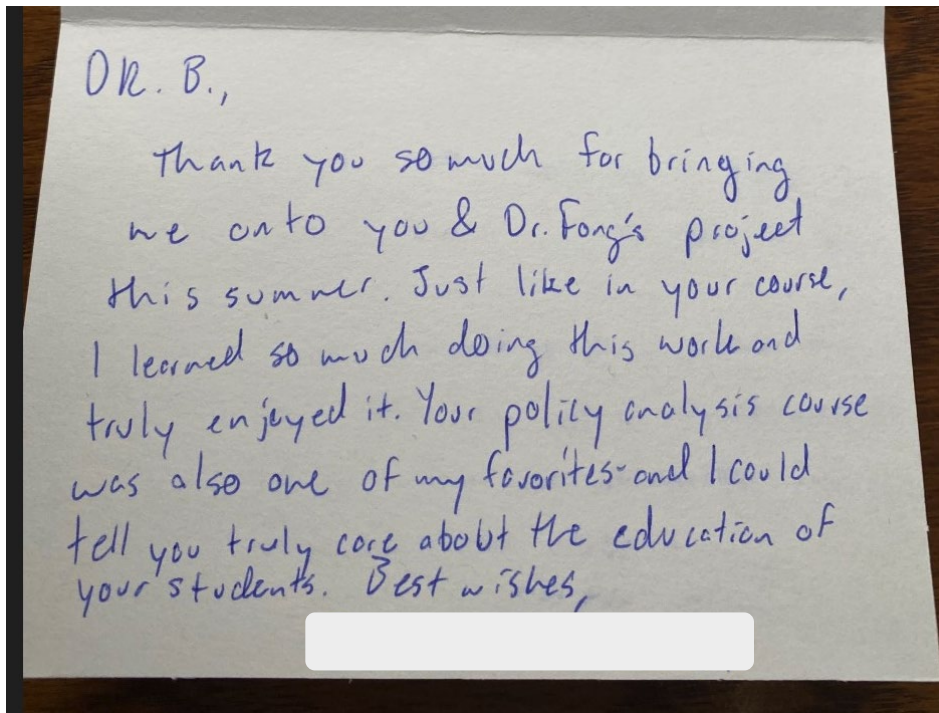 DR. B.,
Thank you so much for bringing
me onto you & Dr. Fong's project
this summer. Just like in your course,
I learned so much doing this work and
truly enjoyed it. Your policy analysis course
was also one of my favorites-and I could
tell you truly care about the education of
your students. Best wishes,